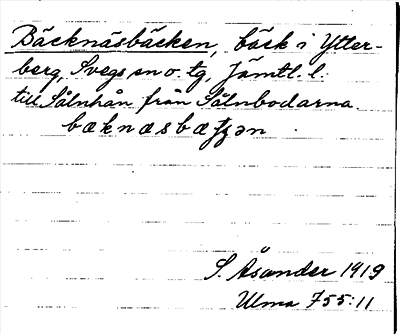 Bäcknäsbäcken, bäck i Ytter-
berg, Svegs sn o. tg, Jämtl. l.
till Sålnhån från Sålnbodarna.
bæknæsbætʃən
S. Åsander 1919
Ulma 755:11